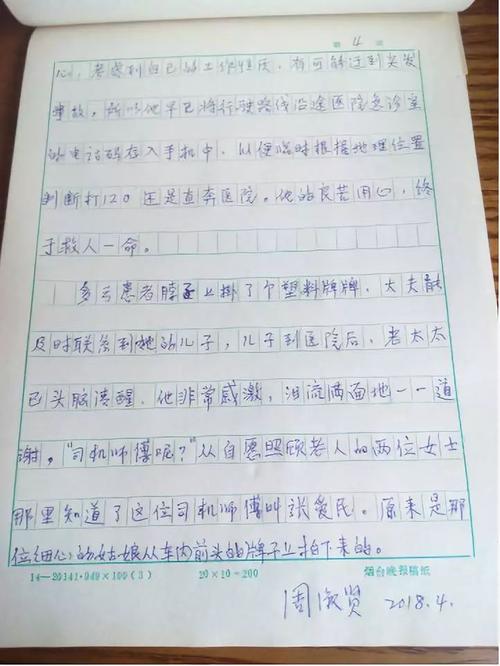 第 4 页
心，考虑到自己的工作性质，有可能遇到突发
事故，所以他早已将行驶路线沿途医院急诊室
的电话码存入手机中，以便临时根据地理位置
判断打120还是直奔医院。他的良苦用心，终
于救人一命。
多亏患者脖子上挂了个塑料牌牌，大夫能
及时联系到她的儿子，儿子到医院后，老太太
已头脑清醒，他非常感激，泪流满面地一一道
谢，“司机师傅呢？”从自愿照顾老人的两位女士
那里知道了这位司机师傅叫张爱民。原来是那
位细心的姑娘从车内前头的牌子上拍下来的。
14—20141·949×100(3) 20×10=200 烟台晚报稿纸
周淑贤 2018.4.